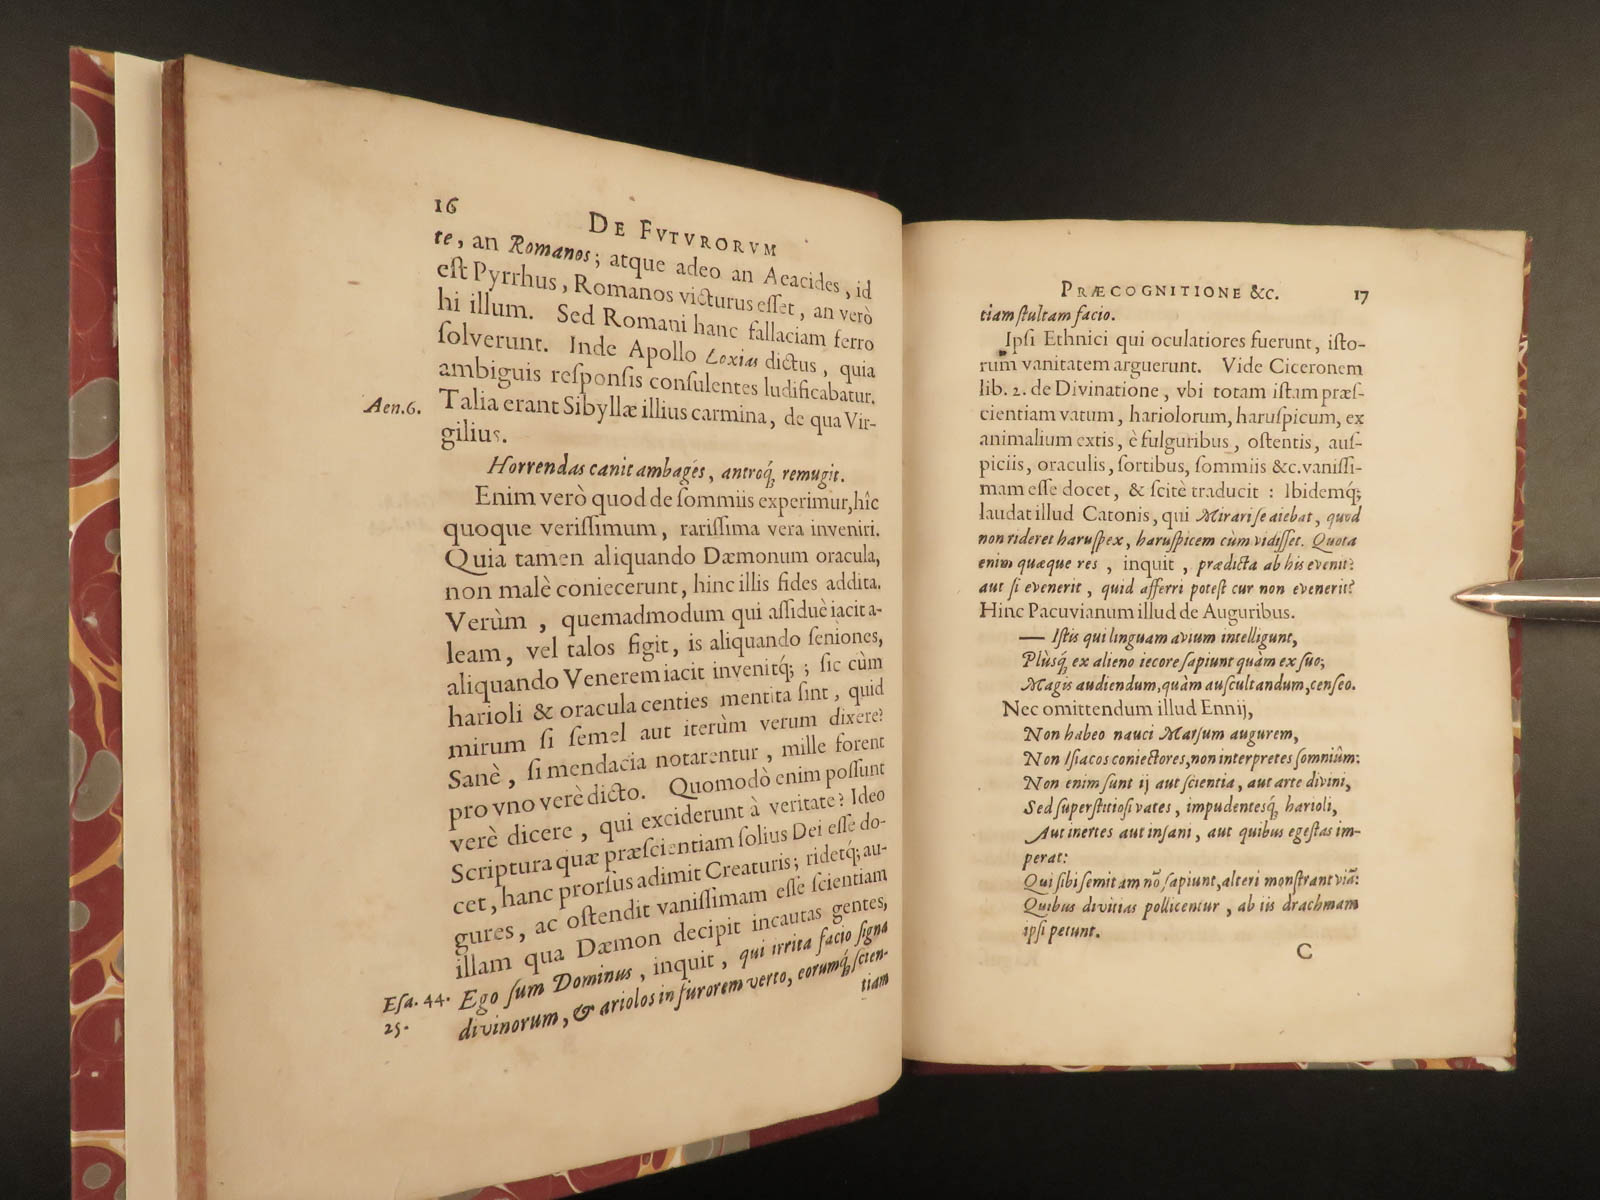 16
DE FVTVRORVM
te, an Romanos; atque adeo an Aeacides, id
eſt Pyrrhus, Romanos victurus eſſet, an verò
hi illum. Sed Romani hanc fallaciam ferro
ſolverunt. Inde Apollo Loxias dictus, quia
ambiguis reſponſis conſulentes ludificabatur.
Aen.6. Talia erant Sibyllæ illius carmina, de qua Vir-
gilius.
Horrendas canit ambagés, antroq́; remugit.
Enim verò quod de ſomniis experimur, hîc
quoque veriſſimum, rariſſima vera inveniri.
Quia tamen aliquando Dæmonum oracula,
non malè coniecerunt, hinc illis fides addita.
Verùm, quemadmodum qui aſſiduè iacit a-
leam, vel talos figit, is aliquando ſeniones,
aliquando Venerem iacit invenitq́;; ſic cùm
harioli & oracula centies mentita ſint, quid
mirum ſi ſemel aut iterùm verum dixere?
Sanè, ſi mendacia notarentur, mille forent
pro vno verè dicto. Quomodò enim poſſunt
verè dicere, qui exciderunt à veritate? Ideo
Scriptura quæ præſcientiam ſolius Dei eſſe do-
cet, hanc prorſus adimit Creaturis; ridetq́; au-
gures, ac oſtendit vaniſſimam eſſe ſcientiam
illam qua Dæmon decipit incautas gentes,
Eſa. 44. Ego ſum Dominus, inquit, qui irrita facio ſigna
25. divinorum, & ariolos in furorem verto, eorumq́; ſcien-
tiam
PRÆCOGNITIONE &c. 17
tiam ſtultam facio.
Ipſi Ethnici qui oculatiores fuerunt, iſto-
rum vanitatem arguerunt. Vide Ciceronem
lib. 2. de Divinatione, vbi totam iſtam præſ-
cientiam vatum, hariolorum, haruſpicum, ex
animalium extis, è fulguribus, oſtentis, auſ-
piciis, oraculis, ſortibus, ſomniis &c. vaniſſi-
mam eſſe docet, & ſcitè traducit : Ibidemq́;
laudat illud Catonis, qui Mirari ſe aiebat, quod
non rideret haruſpex, haruſpicem cùm vidiſſet. Quota
enim quæque res, inquit, prædicta ab his evenit?
aut ſi evenerit, quid afferri poteſt cur non evenerit?
Hinc Pacuvianum illud de Auguribus.
— Iſtis qui linguam avium intelligunt,
Plùsq́; ex alieno iecore ſapiunt quàm ex ſuo;
Magis audiendum, quàm auſcultandum, cenſeo.
Nec omittendum illud Ennij,
Non habeo nauci Marſum augurem,
Non Iſiacos coniectores, non interpretes ſomniûm:
Non enim ſunt ij aut ſcientia, aut arte divini,
Sed ſuperſtitioſi vates, impudentesq́; harioli,
Aut inertes aut inſani, aut quibus egeſtas im-
perat:
Qui ſibi ſemitam nō ſapiunt, alteri monſtrant viā:
Quibus divitias pollicentur, ab iis drachmam
ipſi petunt.
C